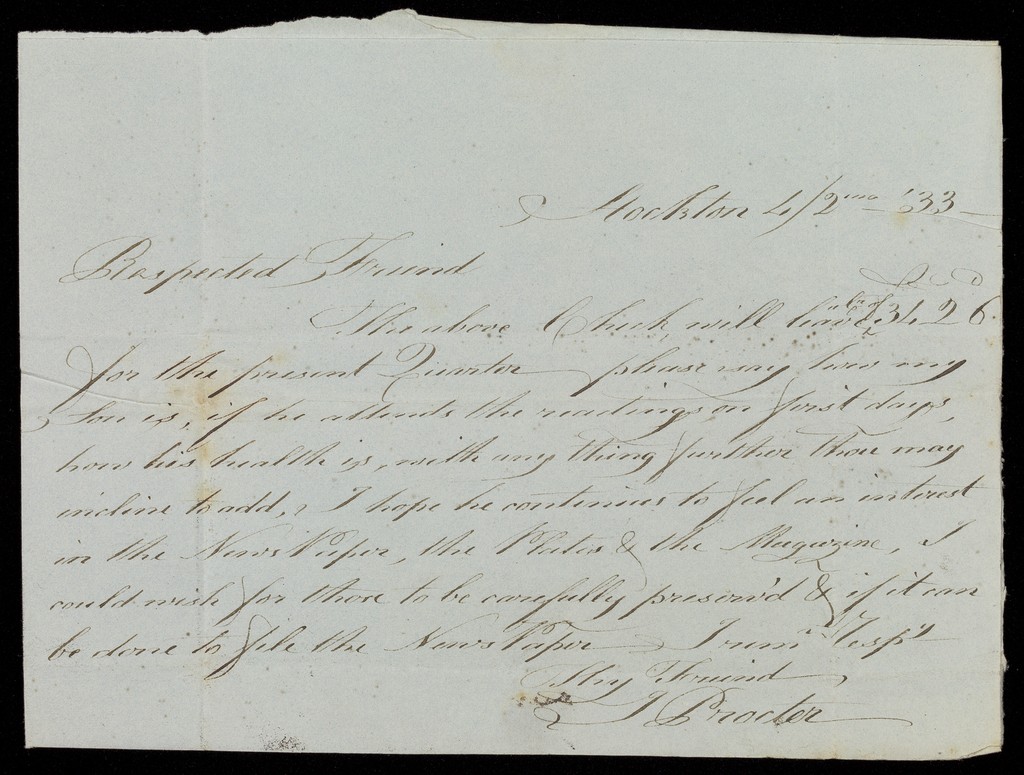 Stockton 4/2mo '33
Respected Friend
The above Check will leave £34. 2 6
for the present Quarter please say how my
Son is, if he attends the readings on first days,
how his health is, with any thing further thou may
incline to add, I hope he continues to feel an interest
in the News Paper, the Plates & the Magazine, I
could wish for those to be carefully preserv'd & if it can
be done to file the News Paper I remn Respy
Thy Friend
J Procter